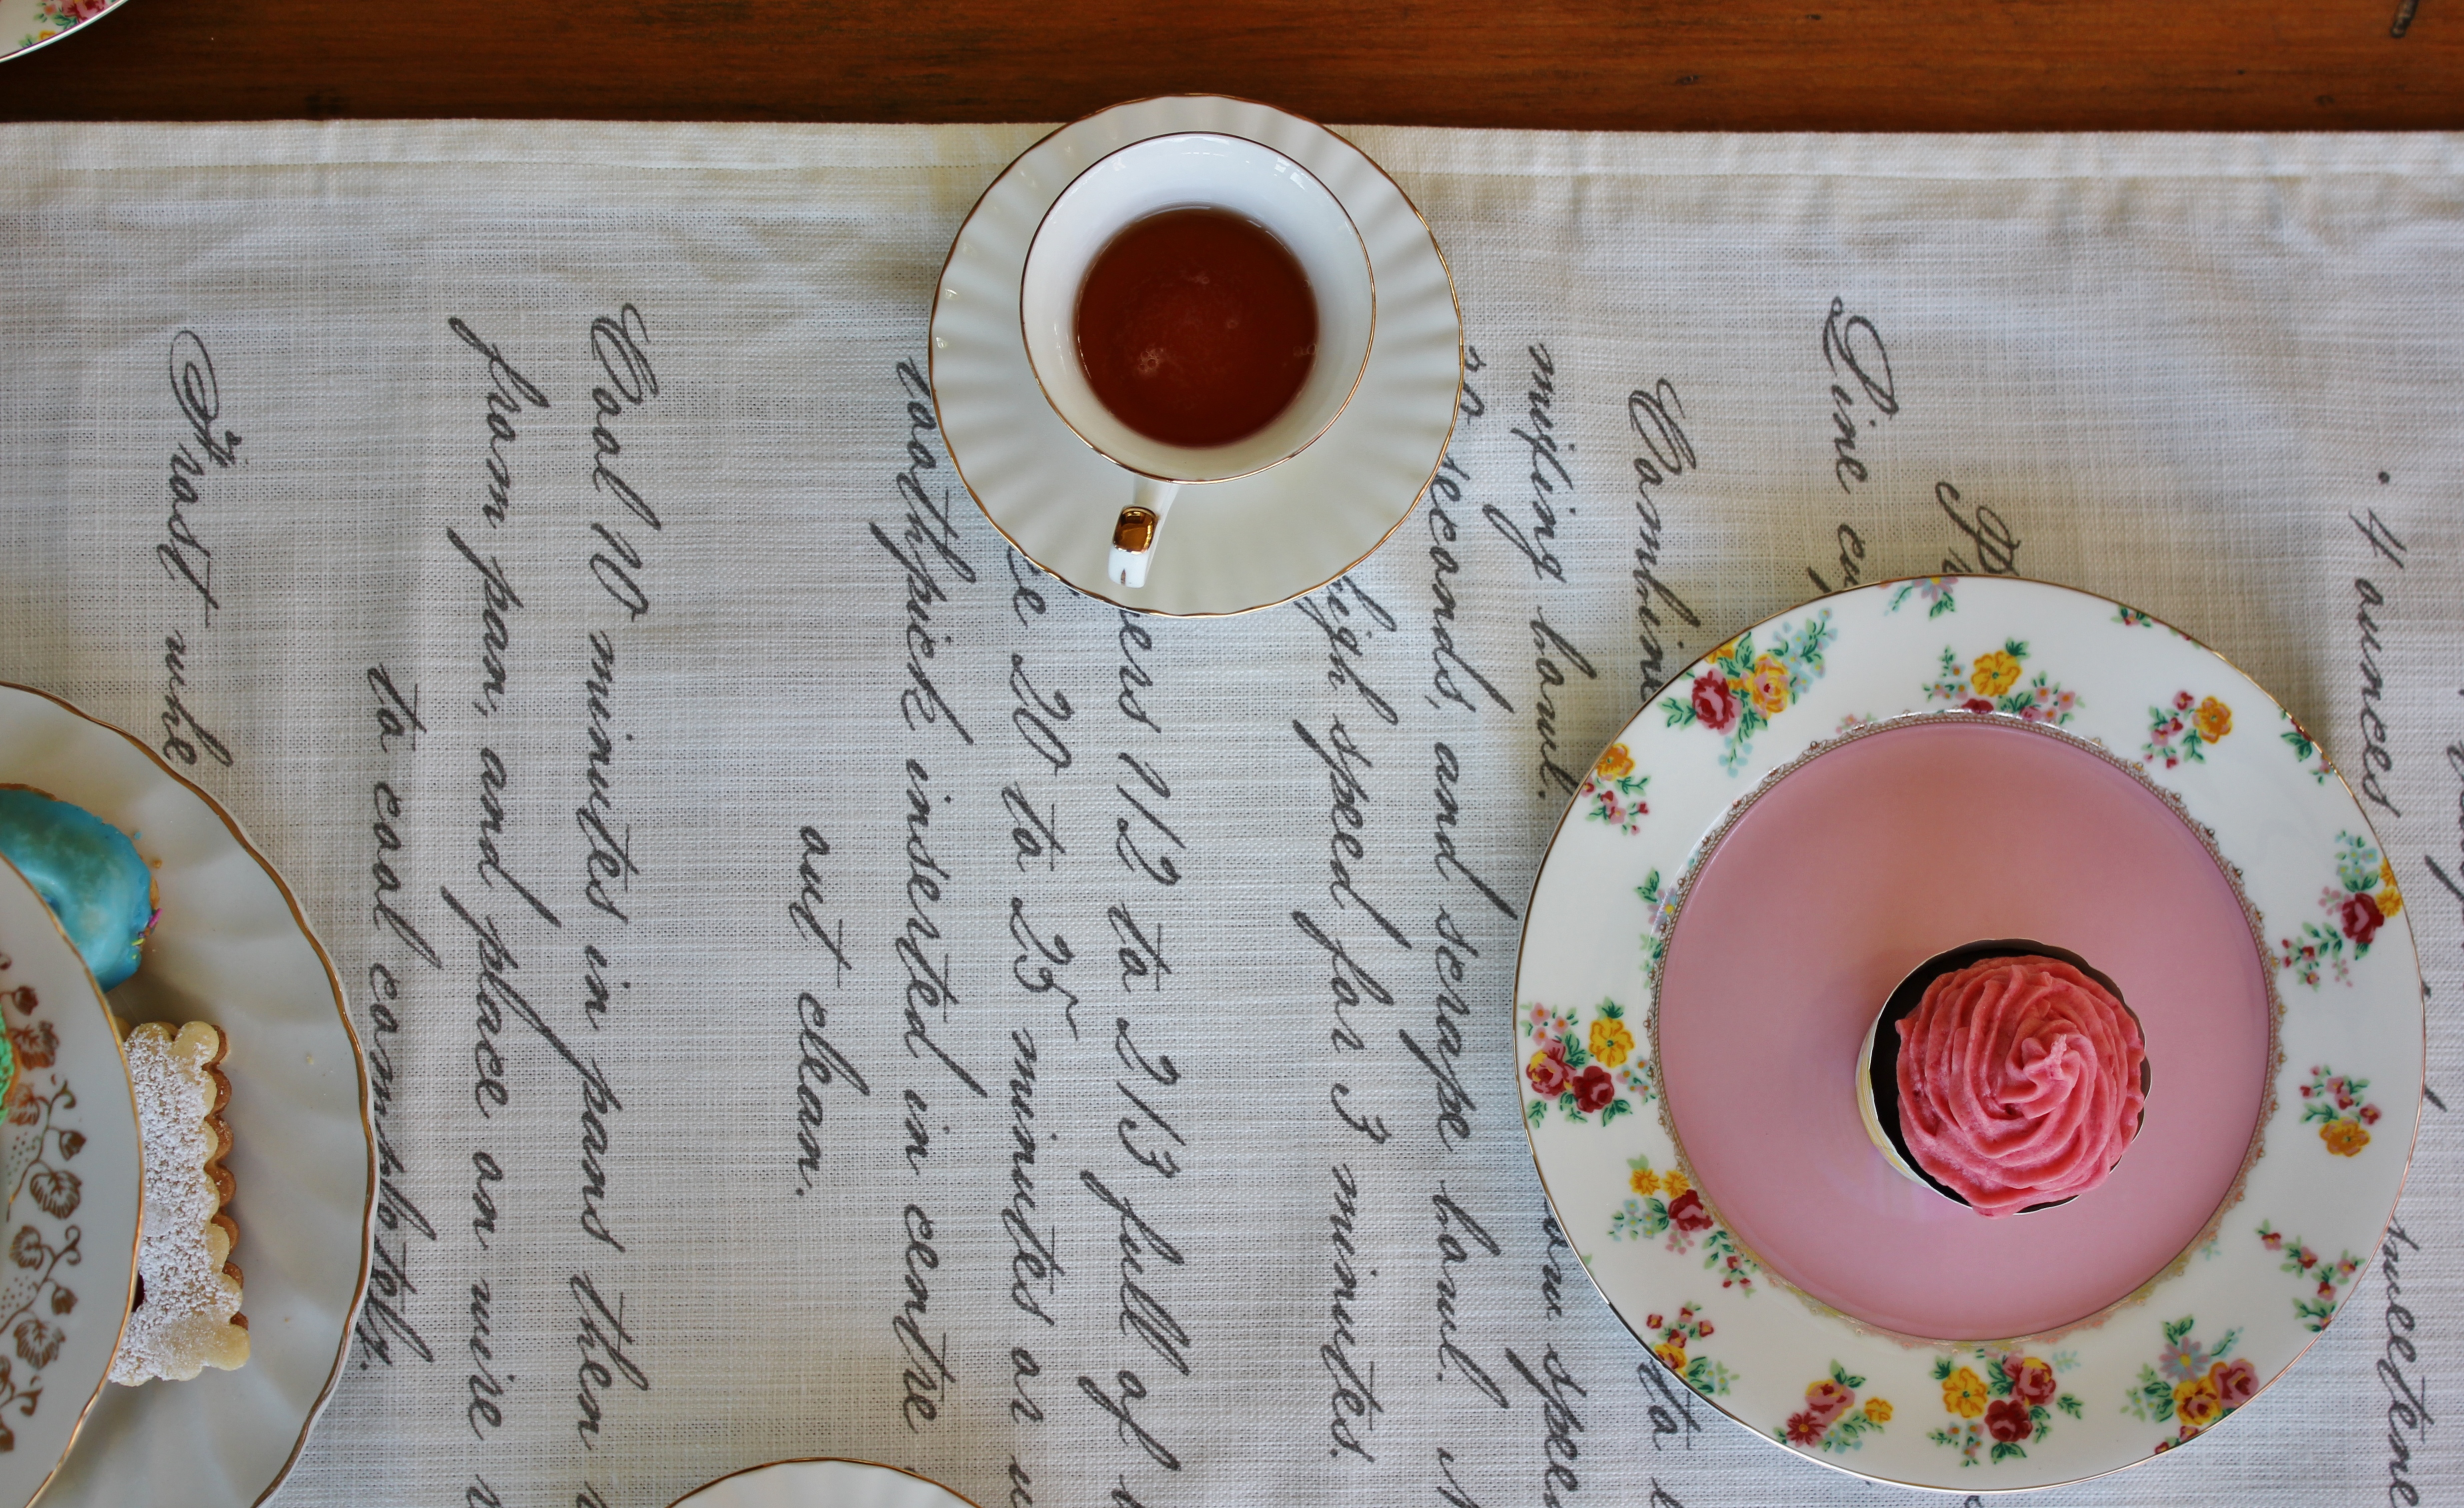 4 ounces sweetene
Line cu
Combine to
mixing bowl. speed
seconds, and scrape bowl.
high speed for 3 minutes.
ers 1/2 to 2/3 full of
20 to 25 minutes or
toothpick inserted in centre
out clean.
Cool 10 minutes in pans then
from pan, and place on wire
to cool completely.
Frost